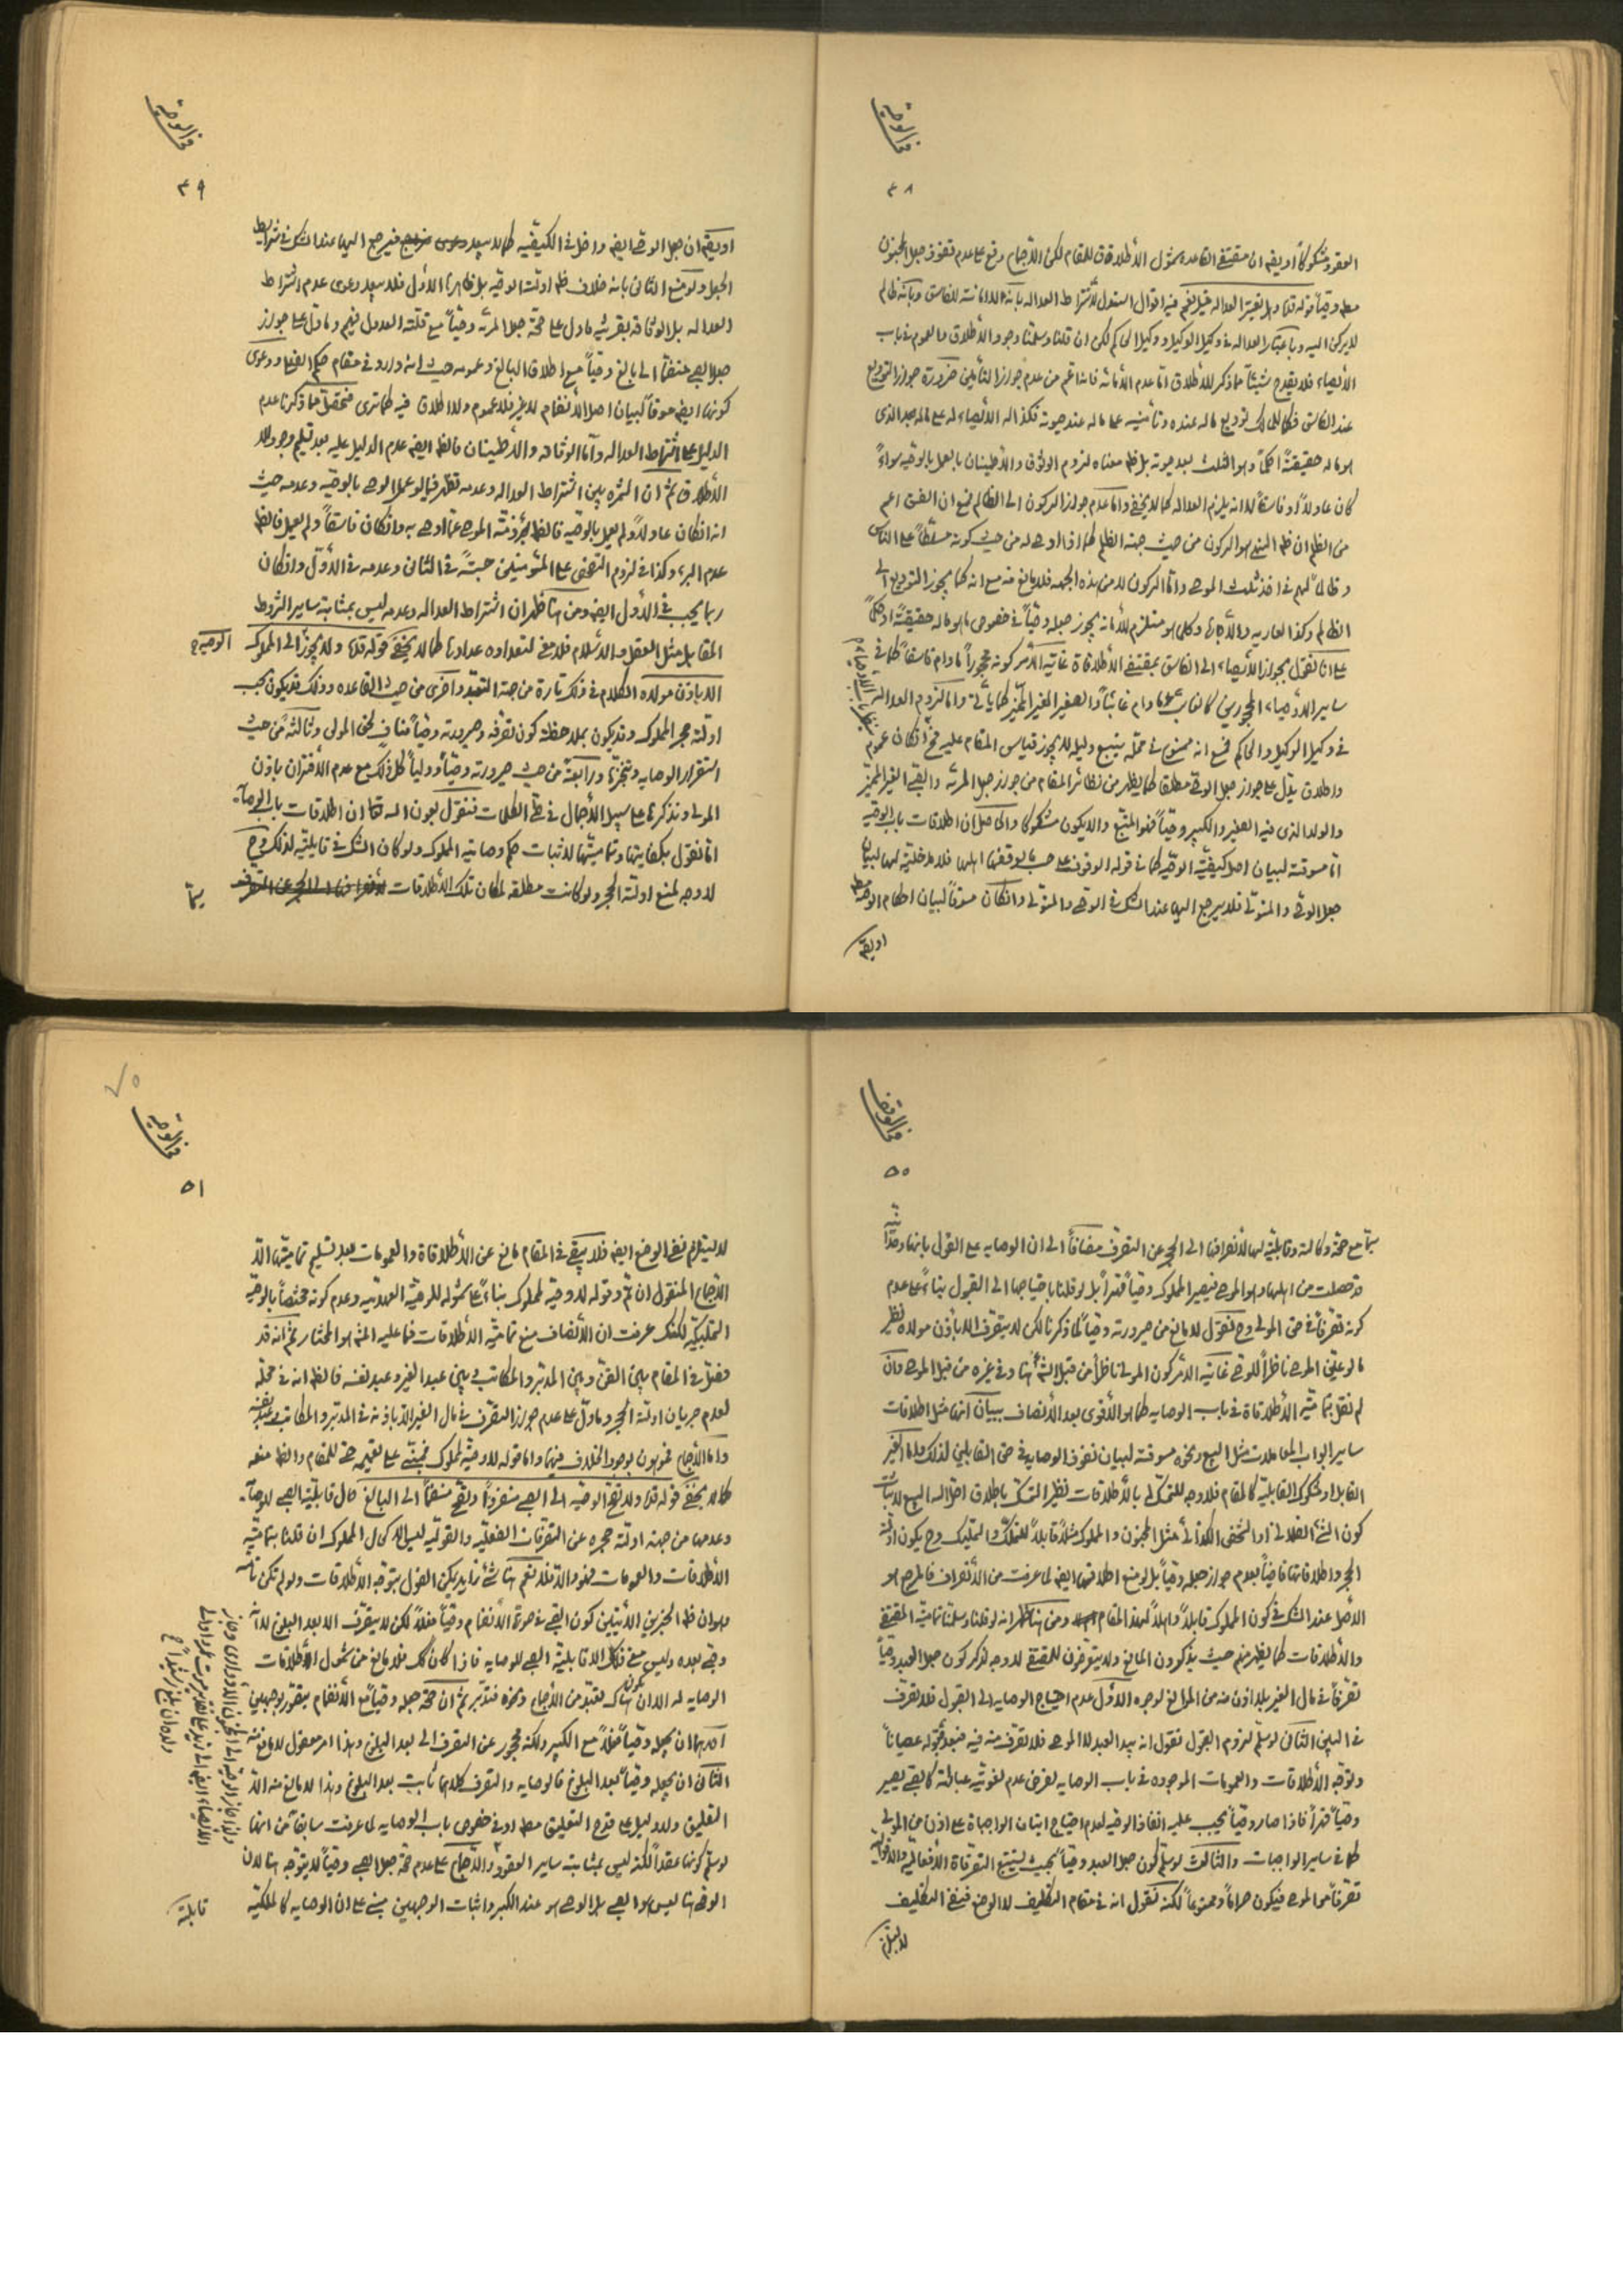 في الوصية
٤٨
العقد مشكوكاً او يقم ان مقتضى القاعده شمول الأطلاق للمقام لكن الأجماع وقع على عدم نفوذ جعل المجنون
وصياً قوله وهل يعتبر العداله قيل نعم فيه اقوال استدل لأشتراط العداله بأنه لا امانة للفاسق وبأنه ظالم
لا يركن اليه وباعتبار العداله في وكيل الوكيل ووكيل الحاكم لكن ان قلنا وسلمنا وجود الأطلاق والعموم في باب
الأيصاء فلا يقدح شيئاً مما ذكر للأطلاق اما عدم الأمانة فانه اعم من عدم جواز التأمين ضرورة جواز التوديع
عند الفاسق فكما للمالك توديع ماله عنده وتأمينه على ماله عند حيوته فكذا له الأيصاء له على ماله بعد الذي
هو ماله حقيقةً او حكماً وهو الثلث بعد موته بل معناه لزوم الوثوق والأطمينان بالعمل بالوصيه سواءً
كان عادلاً او فاسقاً لا انه يلزم العداله كما لا يخفى واما عدم جواز الركون الى الظالم فمع ان الفسق اعم
من الظلم ان المنهي هو الركون من حيث جهة الظلم
الظالم وكذا العاريه والأجاره وكلما هو مستلزم للأمانه يجوز جعله وصياً في خصوص ما هو ماله حقيقةً او حكماً
على انا نقول بجواز الأيصاء الى الفاسق بمقتضى الأطلاقاة غاية الأمر كونه محجوراً ما دام فاسقاً كما في
ساير الأوصياء المحجورين كالغايب ما دام غائباً والصغير الغير المميز كما يأتي واما لزوم العداله
في وكيل الوكيل والحاكم فمع انه ممنوع في محله يتبع دليله لا يجوز قياس المقام عليه فح ان كان عموم
واطلاق يدل على جواز جعل الوصي مطلقا كما يظهر من نظائر المقام من جواز جعل المرئه والصبي الغير المميز
والولد الذي فيه الصغير والكبير وصياً فهو المتبع والا يكون مشكوكا والحاصل ان اطلاقات باب الوصيه
اما مسوقة لبيان اصل كيفية الوصيه كما في قوله الوقوف على حسب ما يوقفها اهلها فلا مدخلية لها لبيان
جعل الوصي والمتولي فلا يرجع اليها عند الشك في الوصي والمتولي وان كان مسوقاً لبيان احكام الوصيه
او يقم
في الوصية
٤٩
او يقم ان جعل الوصي ايضا داخل في الكيفيه كما لا يبعد فيرجع اليها عند الشك في شرايط
الجعل ولو منع الثاني بانه خلاف ادلة الوصيه بل ظاهرها الأول فلا يبعد دعوى عدم اشتراط
العداله بل الوثاقة بقرينة ما دل على صحة جعل المرئه وصياً مع قلة العدول فيهم وما دل على جواز
جعل الصبي منضماً الى بالغ وصياً مع اطلاق البالغ وعمومه حيث انه وارد في مقام حكم الصبي ودعوى
كونها ايضا مسوقاً لبيان اصل الأنضمام لا غير فلا عموم ولا اطلاق فيه كما ترى فتحصل مما ذكرنا عدم
الدليل على اشتراط العداله واما الوثاقه والأطمينان فالظ ايضا عدم الدليل عليه بعد تسليم وجود
الأطلاق ثم ان الثمره بين اشتراط العداله وعدمه تظهر فيما لو عمل الوصي بالوصيه وعدمه حيث
انه ان كان عادلاً ولم يعمل بالوصيه فالظ برئة ذمة الموصي عما اوصى به وان كان فاسقاً ولم يعمل فالظ
عدم البرء وكذا في لزوم التفحص على المتوسلين حسبةً في الثاني وعدمه في الأول وان كان
ربما يجب في الأول ايضا ومن هنا ظهر ان اشتراط العداله وعدمه ليس بمثابة ساير الشروط
المقابل مثل العقل والأسلام فلا معنى لتعداده عدادها كما لا يخفى قوله ولا يجوز الى المملوك
الا باذن مولاه الكلام في ذلك تارة من جهة التعبد واخرى من حيث القاعده وذلك قد يكون بحسب
ادلة حجر المملوك وقد يكون بملاحظة كون تصرفه وصيرورته وصياً مناف لحق المولى وثالثةً من حيث
استقرار الوصايه وتنجزها ورابعةً من حيث صيرورته وصياً وولياً كل ذلك مع عدم الأقتران باذن
المولى ونذكرها على سبيل الأجمال في طي الكلمات فنقول بعون الله تعالى ان اطلاقات باب الوصايه
اما نقول بكفايتها وتماميتها لاثبات حكم وصاية المملوك ولو كان الشك في قابليته لذلك فح
لا وجه لمنع ادلة الحجر ولو كانت مطلقه لمكان تلك الأطلاقات
سيما
في الوصية
٥٠
سيما مع صحة وكالته وقابليته لها لأنصرافها الى الحجر عن التصرف مضافاً الى ان الوصايه على القول بانها
قد حصلت من اهلها وهو الموصي فيصير المملوك وصياً قهراً بل لو قلنا باحتياجها الى القبول بناءً على عدم
كونه تصرفاً في حق المولى وح نقول لا مانع من صيرورته وصياً لما ذكرنا لكن لا يتصرف الا باذن مولاه نظير
ما لو عين الموصي ناظراً للوصي غاية الأمر كون المولى ناظراً من قبل الشرع هنا وفي غيره من قبل الموصي وان
لم نقل بتمامية الأطلاقاة في باب الوصايه كما هو الأقوى بعد الأنصاف ببيان انها مثل اطلاقات
ساير ابواب المعاملات مثل البيع ونحوه مسوقة لبيان نفوذ الوصايه في حق القابلين لذلك واما الغير
القابل او مشكوك القابلية كالمقام فلا وجه للتمسك بالأطلاقات نظير التمسك باطلاق احل الله البيع لاثبات
كون الشئ الفلاني او الشخص الكذائي مثل المجنون والمملوك مثلاً قابلاً للتملك والتمليك وح يكون ادلة
الحجر واطلاقاتها قاضياً بعدم جواز جعله وصياً بل لو منع اطلاقها ايضا لما عرفت من الأنصراف فالمرجع هو
الأصل عند الشك في كون المملوك قابلاً واهلاً لهذا المقام ومن هنا ظهر انه لو قلنا وسلمنا تمامية المقتضي
والأطلاقات كما يظهر منهم حيث يذكرون المانع ولا يتعرضون للمقتضي لا وجه لذكر كون جعل العبد وصياً
تصرفاً في مال الغير بلا اذن منه من الموانع لوجوه الأول عدم احتياج الوصايه الى القبول فلا تصرف
في البين الثاني لو سلم لزوم القبول نقول انه بيد العبد لا الموصي فلا تصرف منه فيه فبعد قبوله عصياناً
وتوجه الأطلاقات والعمومات الموجوده في باب الوصايه لفرض عدم لغوية عبارته كالصبي يصير
وصياً قهراً فاذا صار وصياً يجب عليه انفاذ الوصيه لعدم احتياج اتيان الواجباة على اذن من المولى
كما في ساير الواجبات والثالث لو سلم كون جعل العبد وصياً بحيث يستتبع التصرفاة الأفعاليه والأقواليه
تصرفاً من الموصي فيكون حراماً وممنوعاً لكنه نقول انه في مقام التكليف لا الوضع فنفي التكليف
لا يستلزم
في الوصية
٥١
لا يستلزم نفي الوضع ايضا فلا يبقى في المقام مانع عن الأطلاقاة والعمومات بعد تسليم تماميتها الا
الأجماع المنقول ان تم وقوله لا وصية لمملوك بناءً على شموله للوصية العهديه وعدم كونه مختصاً بالوصية
التمليكيه لكنك عرفت ان الأنصاف منع تمامية الأطلاقات فما عليه المشهور هو المختار ثم انه قد
فصل في المقام بين القن وبين المدبر والمكاتب وبين عبد الغير وعبد نفسه فالظ انه في محله
لعدم جريان ادلة الحجر وما دل على عدم جواز التصرف في مال الغير الا باذنه في المدبر والمكاتب وعبد نفسه
واما الأجماع فموهون بوجود الخلاف فيهما واما قوله لا وصية لمملوك فمبني على تعميمه حتى للمقام والظ منعه
كما لا يخفى قوله ولا تصح الوصيه الى الصبي منفرداً وتصح منضماً الى البالغ حال قابلية الصبي للوصايه
وعدمها من جهة ادلة حجره عن التصرفات الفعليه والقوليه ليس الا كحال المملوك ان قلنا بتمامية
الأطلاقات والعمومات فهو والا فلا نعم هنا شئ زايد يمكن القول بتوجه الأطلاقات ولو لم تكن تامه
وهو ان ظ الخبرين الأتيين كون الصبي في صورة الأنضمام وصياً فعلاً لكن لا يتصرف الا بعد البلوغ لا انه
وصي بعده وليس معنى ذلك الا قابلية الصبي للوصايه فاذا كان كك فلا مانع من شمول الأطلاقات
الوصايه له الا ان يكون هناك تعبد من الأجماع ونحوه فتدبر ثم ان صحة جعله وصياً مع الأنضمام يتصور بوجهين
احدهما ان يجعله وصياً فعلاً مع الكبير ولكنه محجور عن التصرف الى بعد البلوغ وهذا امر معقول لا مانع منه
الثاني ان يجعله وصياً بعد البلوغ فالوصايه والتصرف كلاهما ثابت بعد البلوغ وهذا لا مانع منه الا
التعليق ولا دليل على قدح التعليق او في خصوص باب الوصايه لما عرفت سابقاً من انها
لو سلم كونها عقداً لكنه ليس بمثابة ساير العقود والأجماع على عدم صحة جعل الصبي وصياً لا يتوجه هنا لأن
الوصي هنا ليس هو الصبي بل الوصي هو عند الكبر واثبات الوجهين مبني على ان الوصايه كالملكيه
قابلة